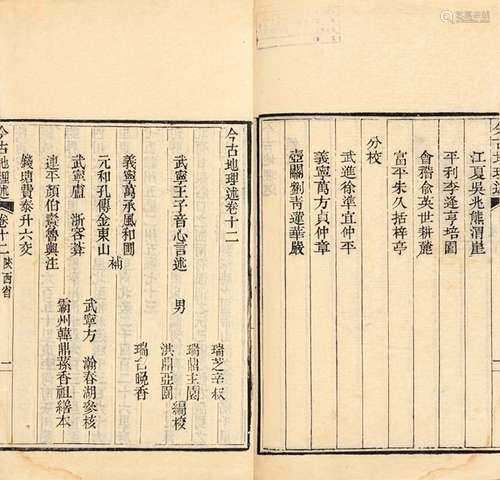 江夏吳兆熊渭崖
平利李逢亨培園
會稽俞英世耕𦔳
富平朱久括梓亭
分校
武進徐準宜仲平
義寧萬方貞仲章
壺關劉青蓮華嚴
今古地理述卷十二
武寧王子音心言述
男
瑞芝幸叔
瑞鼎玉園
洪鼎亞園
瑞呂晚香
編校
義寧萬承風和圃
元和孔傳金東山
補
武寧盧浙客莽
武寧方瀚春湖參核
連平顏伯燾魯輿注
霸州韓鼎蓀香祖繕本
錢塘費泰升六交
今古地理述
卷十二
陝西省
一
今古地理述